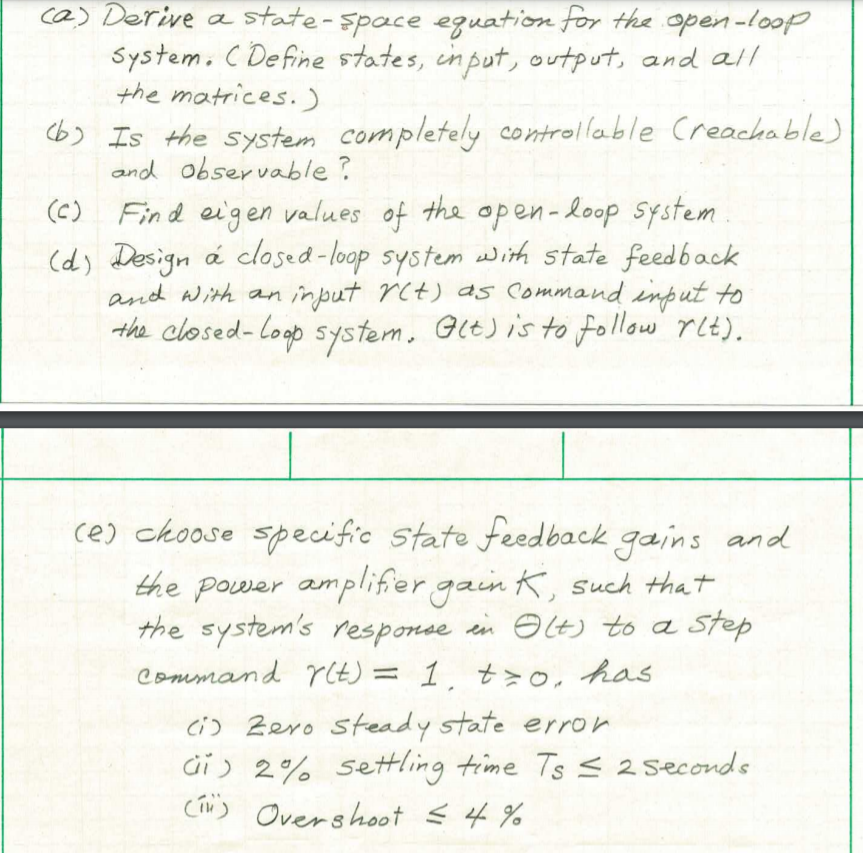 (a) Derive a state-space equation for the open-loop
system. (Define states, input, output, and all
the matrices.)
(b) Is the system completely controllable (reachable)
and observable?
(c) Find eigen values of the open-loop system.
(d) Design a closed-loop system with state feedback
and with an input r(t) as command input to
the closed-loop system. θ(t) is to follow r(t).
(e) choose specific state feedback gains and
the power amplifier gain K, such that
the system's response in θ(t) to a step
command r(t) = 1, t ≥ 0, has
(i) Zero steady state error
(ii) 2% settling time Ts ≤ 2 seconds
(iii) Overshoot ≤ 4 %